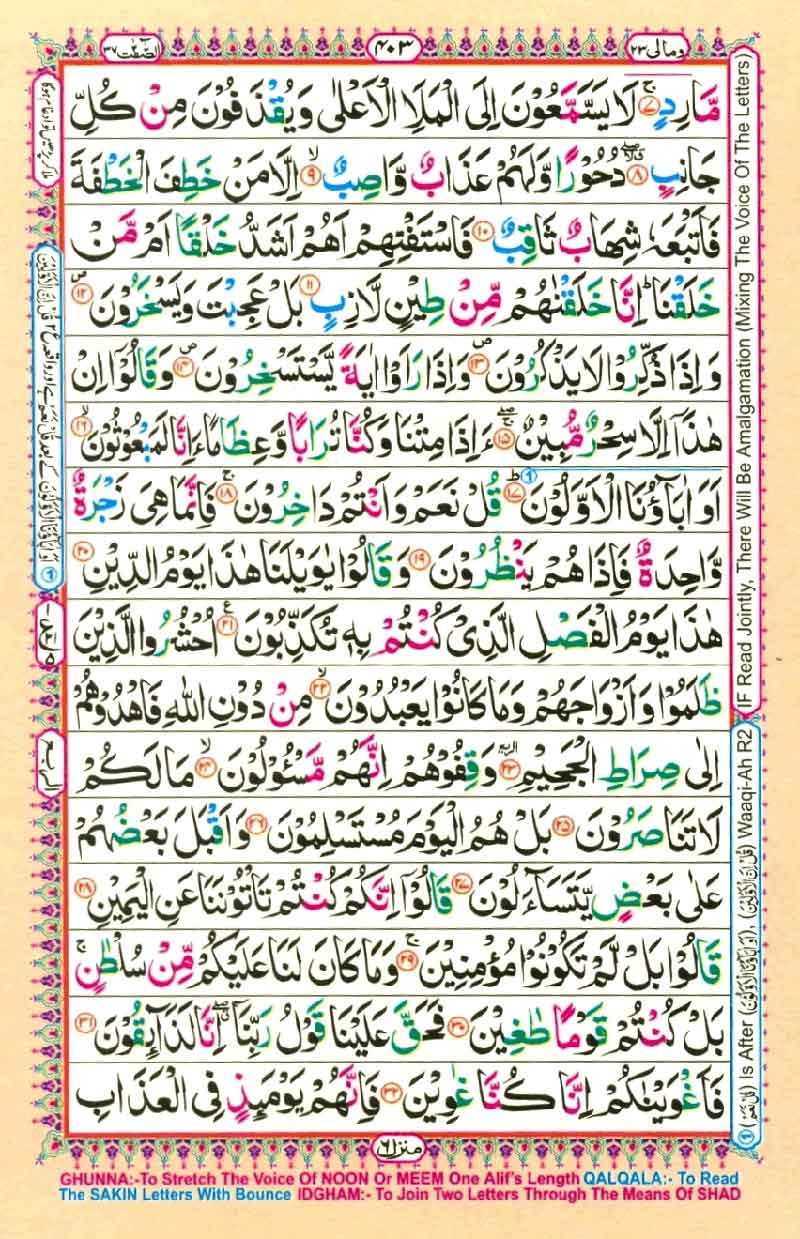 ومالی ٢٣
٤٠٣
الصّٰفّٰت ٣٧
مَّارِدٍ ۚ‏ ﴿٧﴾ لَا يَسَّمَّعُوۡنَ اِلَى الۡمَلَاِ الۡاَعۡلٰى وَيُقۡذَفُوۡنَ مِنۡ كُلِّ
جَانِبٍ ۖ ﴿٨﴾ دُحُوۡرًا وَّلَهُمۡ عَذَابٌ وَّاصِبٌ ۙ ﴿٩﴾ اِلَّا مَنۡ خَطِفَ الۡخَطۡفَةَ
فَاَتۡبَعَهٗ شِهَابٌ ثَاقِبٌ ﴿١٠﴾ فَاسۡتَفۡتِهِمۡ اَهُمۡ اَشَدُّ خَلۡقًا اَمۡ مَّنۡ
خَلَقۡنَا ؕ اِنَّا خَلَقۡنٰهُمۡ مِّنۡ طِيۡنٍ لَّازِبٍ ﴿١١﴾ بَلۡ عَجِبۡتَ وَيَسۡخَرُوۡنَ ﴿١٢﴾
وَاِذَا ذُكِّرُوۡا لَا يَذۡكُرُوۡنَ ﴿١٣﴾ وَاِذَا رَاَوۡا اٰيَةً يَّسۡتَسۡخِرُوۡنَ ﴿١٤﴾ وَقَالُوۡۤا اِنۡ
هٰذَاۤ اِلَّا سِحۡرٌ مُّبِيۡنٌ ﴿١٥﴾ ءَاِذَا مِتۡنَا وَكُنَّا تُرَابًا وَّعِظَامًا ءَاِنَّا لَمَبۡعُوۡثُوۡنَ ﴿١٦﴾
اَوَاٰبَآؤُنَا الۡاَوَّلُوۡنَ ؕ ﴿١٧﴾ قُلۡ نَعَمۡ وَاَنۡتُمۡ دَاخِرُوۡنَ ۚ ﴿١٨﴾ فَاِنَّمَا هِىَ زَجۡرَةٌ
وَّاحِدَةٌ فَاِذَا هُمۡ يَنۡظُرُوۡنَ ﴿١٩﴾ وَقَالُوۡا يٰوَيۡلَنَا هٰذَا يَوۡمُ الدِّيۡنِ ﴿٢٠﴾
هٰذَا يَوۡمُ الۡفَصۡلِ الَّذِىۡ كُنۡتُمۡ بِهٖ تُكَذِّبُوۡنَ ﴿٢١﴾ اُحۡشُرُوا الَّذِيۡنَ
ظَلَمُوۡا وَاَزۡوَاجَهُمۡ وَمَا كَانُوۡا يَعۡبُدُوۡنَ ۙ ﴿٢٢﴾ مِنۡ دُوۡنِ اللّٰهِ فَاهۡدُوۡهُمۡ
اِلٰى صِرَاطِ الۡجَحِيۡمِ ﴿٢٣﴾ وَقِفُوۡهُمۡ اِنَّهُمۡ مَّسۡـُٔوۡلُوۡنَ ۙ ﴿٢٤﴾ مَا لَـكُمۡ
لَا تَنَاصَرُوۡنَ ﴿٢٥﴾ بَلۡ هُمُ الۡيَوۡمَ مُسۡتَسۡلِمُوۡنَ ﴿٢٦﴾ وَاَقۡبَلَ بَعۡضُهُمۡ
عَلٰى بَعۡضٍ يَّتَسَآءَلُوۡنَ ﴿٢٧﴾ قَالُوۡۤا اِنَّكُمۡ كُنۡتُمۡ تَاۡتُوۡنَنَا عَنِ الۡيَمِيۡنِ ﴿٢٨﴾
قَالُوۡا بَلۡ لَّمۡ تَكُوۡنُوۡا مُؤۡمِنِيۡنَ ۚ ﴿٢٩﴾ وَمَا كَانَ لَنَا عَلَيۡكُمۡ مِّنۡ سُلۡطٰنٍ ۚ
بَلۡ كُنۡتُمۡ قَوۡمًا طٰغِيۡنَ ﴿٣٠﴾ فَحَقَّ عَلَيۡنَا قَوۡلُ رَبِّنَاۤ ۖ اِنَّا لَذَآٮِٕقُوۡنَ ﴿٣١﴾
فَاَغۡوَيۡنٰكُمۡ اِنَّا كُنَّا غٰوِيۡنَ ﴿٣٢﴾ فَاِنَّهُمۡ يَوۡمَٮِٕذٍ فِى الۡعَذَابِ
منزل ٦
الربع
IF Read Jointly, There Will Be Amalgamation (Mixing The Voice Of The Letters)
Is After Waaqi-Ah R2
GHUNNA:-To Stretch The Voice Of NOON Or MEEM One Alif's Length QALQALA:- To Read
The SAKIN Letters With Bounce IDGHAM:- To Join Two Letters Through The Means Of SHAD